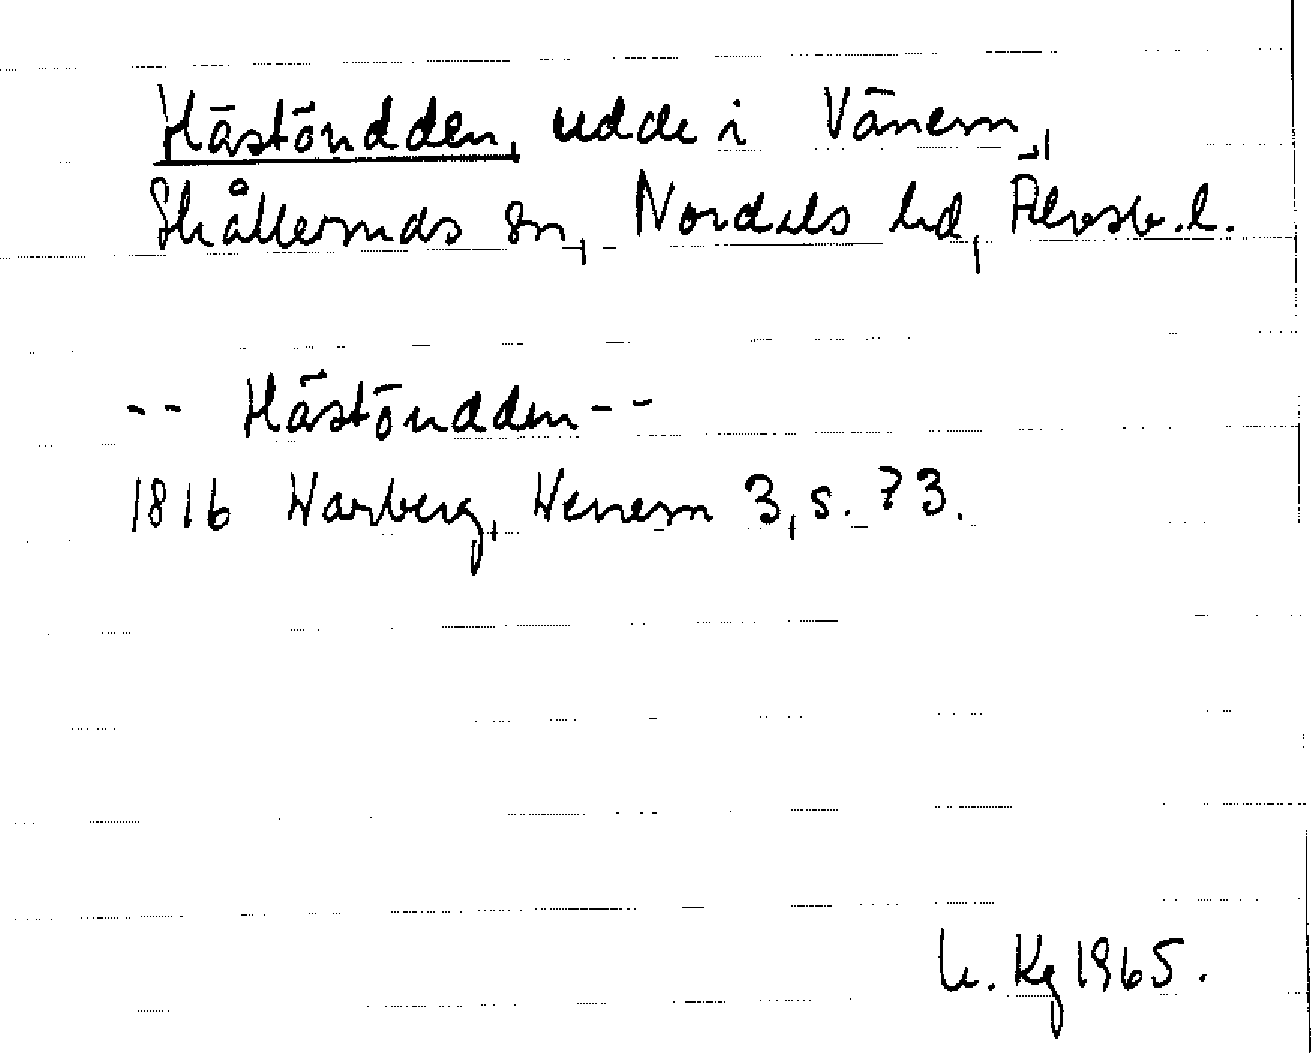 Hästöudden, udde i Vänern,
Skålleruds sn, Nordals hd, Älvsb. l.
-- Hästöudden --
1816 Warberg, Wenern 3, s. 73.
Kg 1965.